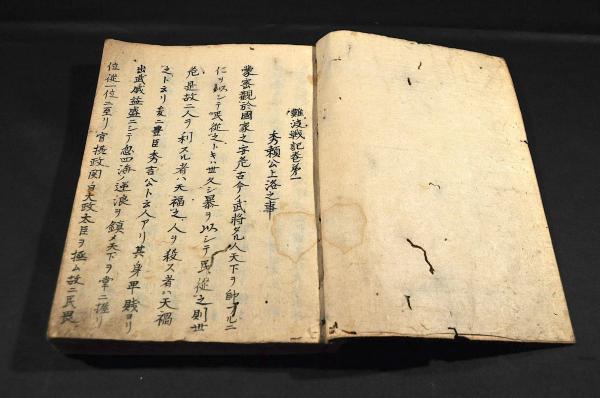 難波戦記巻第一
秀頼公上洛之事
蒙密觀於國家之字危古今ノ武將タル人天下ヲ帥ヲルニ
仁ヲ以シテ民從之トキハ世久シ暴ヲ以シテ民從之則世
危是故ニ人ヲ利スル者ハ天福之人ヲ殺ス者ハ天禍
之トネリ爰ニ豊臣秀吉公ト云人アリ其身卑賎ヨリ
出武威益盛ニシテ忽四海ノ逆浪ヲ鎮メ天下ヲ掌ニ握リ
位從一位ニ至リ官摂政関白大政太臣ヲ極ム故ニ民畏